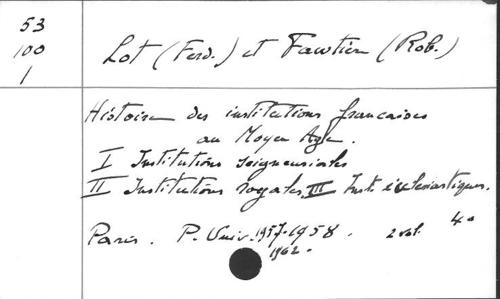 53
100
1
Lot (Ferd.) et Fawtier (Rob.)
Histoire des institutions françaises
au Moyen Age.
I Institutions seigneuriales
II Institutions royales. III Inst. ecclésiastiques.
Paris. P. Univ. 1957-1958. 2 vol. 4°
1962.